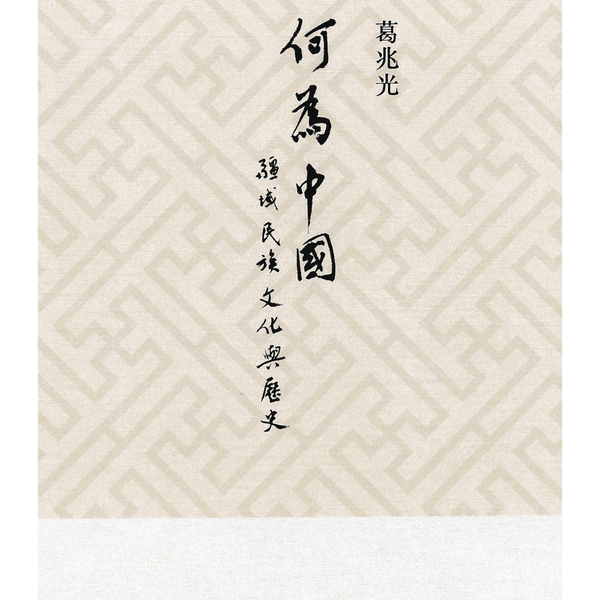 葛兆光
何為中國
疆域民族文化與歷史